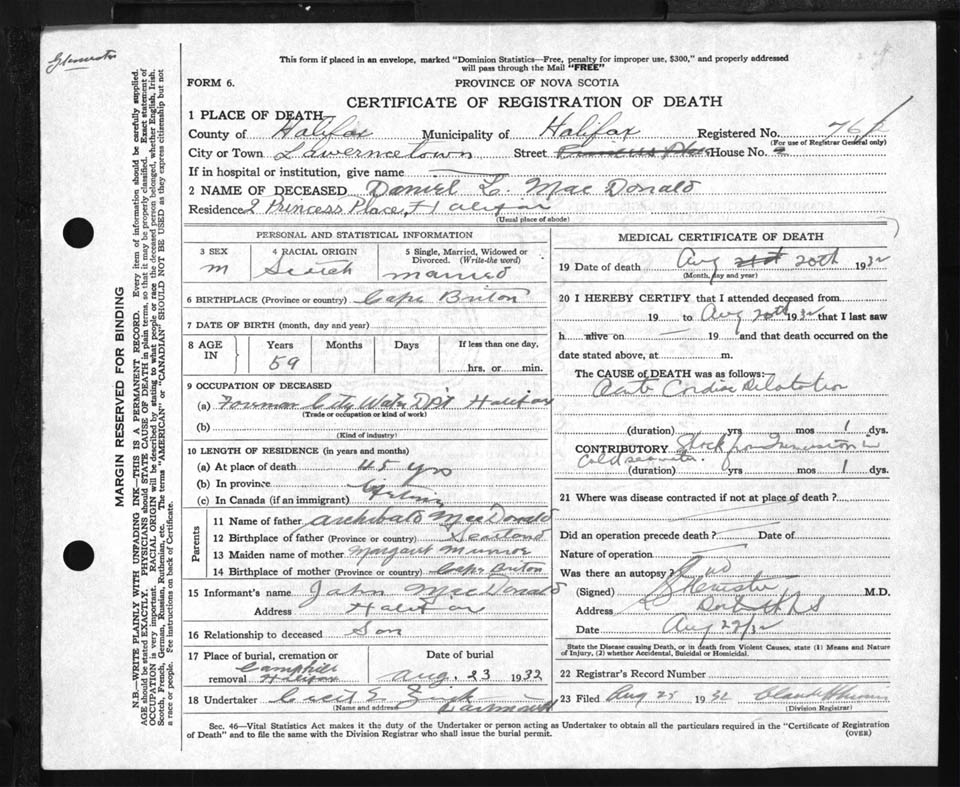 This form if placed in an envelope, marked "Dominion Statistics—Free, penalty for improper use, $300," and properly addressed
will pass through the Mail "FREE"
FORM 6.
PROVINCE OF NOVA SCOTIA
CERTIFICATE OF REGISTRATION OF DEATH
1 PLACE OF DEATH
County of Halifax Municipality of Halifax Registered No. 76
(For use of Registrar General only)
City or Town Lawerncetown Street Princess Place House No. 2
If in hospital or institution, give name
2 NAME OF DECEASED Daniel L. MacDonald
Residence 2 Princess Place, Halifax
(Usual place of abode)
PERSONAL AND STATISTICAL INFORMATION
3 SEX 4 RACIAL ORIGIN 5 Single, Married, Widowed or
Divorced. (Write-the word)
m Scotch married
6 BIRTHPLACE (Province or country) Cape Briton
7 DATE OF BIRTH (month, day and year)
8 AGE IN Years Months Days If less than one day,
59 hrs. or min.
9 OCCUPATION OF DECEASED
(a) Foreman City Water Dpt Halifax
(Trade or occupation or kind of work)
(b)
(Kind of industry)
10 LENGTH OF RESIDENCE (in years and months)
(a) At place of death 45 yrs
(b) In province
(c) In Canada (if an immigrant)
Parents
11 Name of father Archibald MacDonald
12 Birthplace of father (Province or country) Scotland
13 Maiden name of mother Margaret Munroe
14 Birthplace of mother (Province or country) Cape Briton
15 Informant's name John MacDonald
Address Halifax
16 Relationship to deceased Son
17 Place of burial, cremation or
removal Camphill Halifax
Date of burial
Aug. 23 1932
18 Undertaker Cecil E. Zink
(Name and address) Dartmouth
MEDICAL CERTIFICATE OF DEATH
19 Date of death Aug 21st 20th 1932
(Month, day and year)
20 I HEREBY CERTIFY that I attended deceased from
19 to Aug 20th 1932 that I last saw
h alive on 19 and that death occurred on the
date stated above, at m.
The CAUSE of DEATH was as follows:
Acute Cardiac Dilatation
(duration) yrs mos 1 dys.
CONTRIBUTORY Shock from Immersion in
cold seawater.
(duration) yrs mos 1 dys.
21 Where was disease contracted if not at place of death?
Did an operation precede death? Date of
Nature of operation
Was there an autopsy? no
(Signed) M.D.
Address Dartmouth N S
Date Aug 22/32
State the Disease causing Death, or in death from Violent Causes, state (1) Means and Nature
of Injury, (2) whether Accidental, Suicidal or Homicidal.
22 Registrar's Record Number
23 Filed Aug 25 1932
(Division Registrar)
Sec. 46—Vital Statistics Act makes it the duty of the Undertaker or person acting as Undertaker to obtain all the particulars required in the "Certificate of Registration
of Death" and to file the same with the Division Registrar who shall issue the burial permit. (OVER)
MARGIN RESERVED FOR BINDING
N.B.—WRITE PLAINLY WITH UNFADING INK—THIS IS A PERMANENT RECORD. Every item of information should be carefully supplied.
AGE should be stated EXACTLY. PHYSICIANS should STATE CAUSE OF DEATH in plain terms, so that it may be properly classified. Exact statement of
OCCUPATION is very important. RACIAL ORIGIN will be described by stating to what people or race the deceased person belonged, whether English, Irish,
Scotch, French, German, Russian, Ruthenian, etc. The terms "AMERICAN" or "CANADIAN" SHOULD NOT BE USED as they express citizenship but not
a race or people. See instructions on back of Certificate.